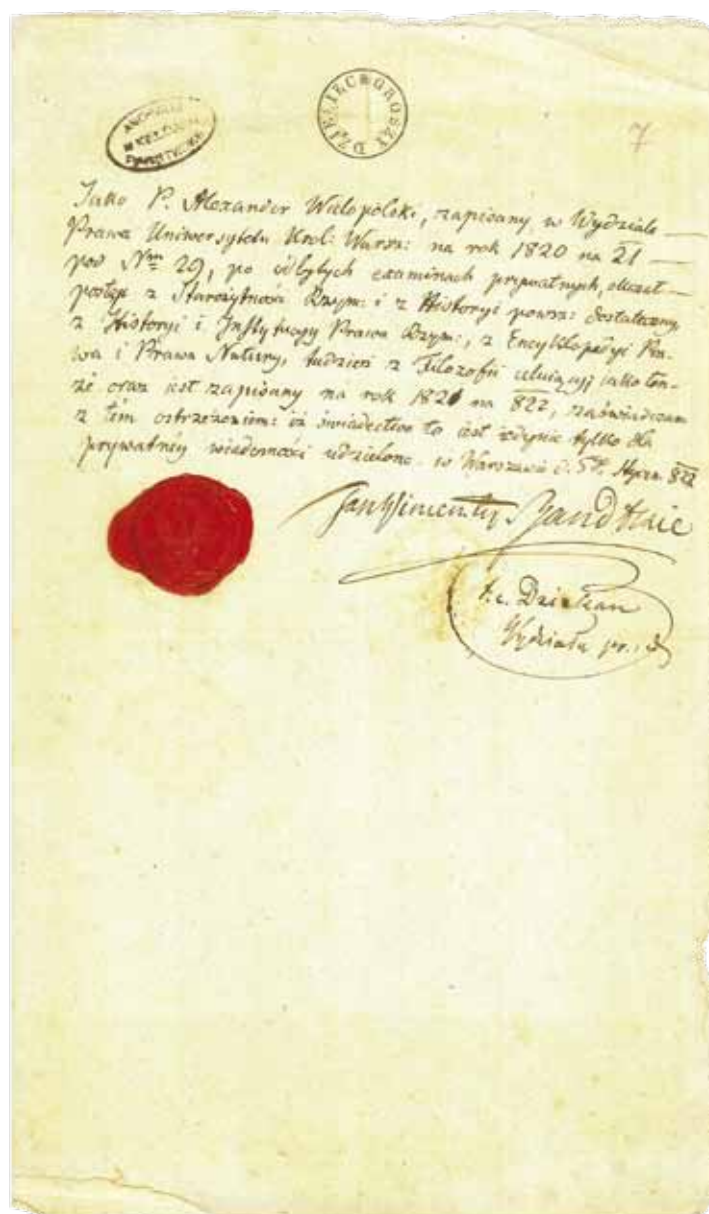 DZIESIĘĆ GROSZY
7
Jako P. Alexander Wielopolski, zapisany w Wydziale
Prawa Uniwersytetu Król: Warsz: na rok 1820 na 21
pod Nrm 29, po odbytych examinach prywatnych, okazał
postęp z Starożytności Rzym: i z Historyi powsz: dostateczny,
z Historyi i Instytucyy Prawa Rzym:, z Encyklopedyi Pra-
wa i Prawa Natury, tudzież z Filozofii celuiący iako ten-
że oraz iest zapisany na rok 1821 na 822, zaświadczam
z tém ostrzeżeniem: iż świadectwo to iest iedynie tylko dla
prywatnéy wiadomości udzielone. w Warszawie d. 5go Stycz. 822
Jan Wincenty Bandtkie
t. c. Dziekan
Wydziału pr. i